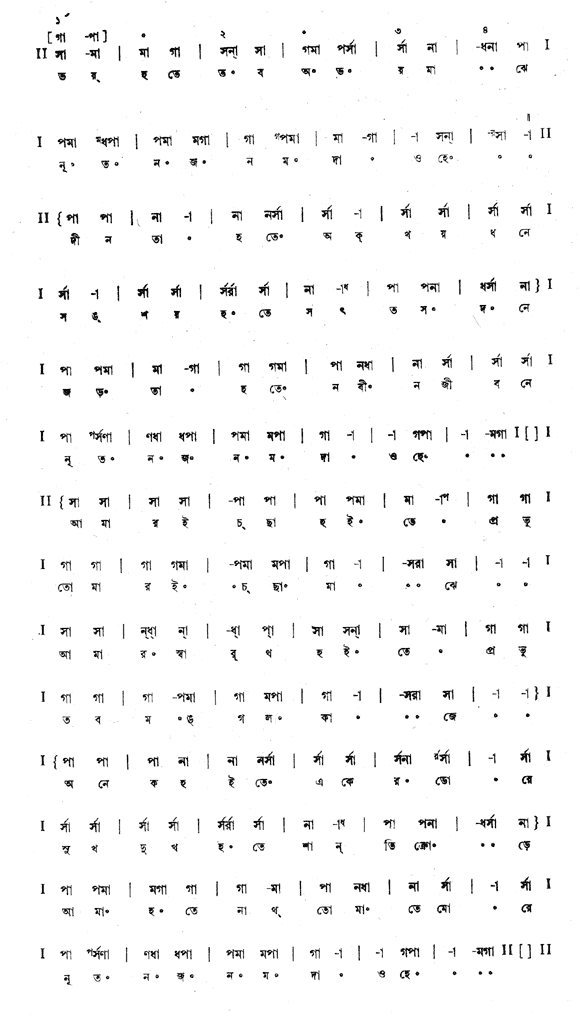 ১´
[গা -পা] ০ ২ ০ ৩ ৪
II সা -মা | মা গা | সন্‌া সা | গমা পর্সা | র্সা না | -ধনা পা I
ভ য়্ হ তে ত॰ ব অ॰ ভ॰ য় মা ॰ ॰ ঝে
I পমা মধপা | পমা মগা | গা পমা | মা -গা | -া সন্‌া | -সা -া II
নূ॰ ত॰ ন॰ জ॰ ন ম॰ দা ॰ ও হে॰ ॰ ॰
II {পা পা | না -া | না নর্সা | র্সা -া | র্সা র্সা | র্সা র্সা I
দী ন তা ॰ হ তে॰ অ ক্ ষ য় ধ নে
I র্সা -া | র্সা র্সা | র্সর্রা র্সা | না -াধ | পা পনা | ধর্সা না} I
স ঙ্ শ য় হ॰ তে স ৎ ত স॰ দ॰ নে
I পা পমা | মা -গা | গা গমা | পা নধা | না র্সা | র্সা র্সা I
জ ড়॰ তা ॰ হ তে॰ ন বী॰ ন জী ব নে
I পা র্সণা | ণধা ধপা | পমা মপা | গা -া | -া গপা | -া -মগা I [] I
নূ ত॰ ন॰ জ॰ ন॰ ম॰ দা ॰ ও হে॰ ॰ ॰ ॰
II {সা সা | সা সা | -পা পা | পা পমা | মা -াপ | গা গা I
আ মা র ই চ্ ছা হ ই॰ তে ॰ প্র ভূ
I গা গা | গা গমা | -পমা মপা | গা -া | -সরা সা | -া -া I
তো মা র ই॰ ॰চ্ ছা॰ মা ॰ ॰ ॰ ঝে ॰ ॰
I সা সা | ন্‌ধ্‌া ন্‌া | -ধ্‌া প্‌া | সা সন্‌া | সা -মা | গা গা I
আ মা র॰ স্বা র্ থ হ ই॰ তে ॰ প্র ভূ
I গা গা | গা -পমা | গা মপা | গা -া | -সরা সা | -া -া} I
ত ব ম ॰ঙ্ গ ল॰ কা ॰ ॰ ॰ জে ॰ ॰
I {পা পা | পা না | না নর্সা | র্সা র্সা | র্সনা র্সা | -া র্সা I
অ নে ক হ ই তে॰ এ কে র॰ ডো ॰ রে
I র্সা র্সা | র্সা র্সা | র্সর্রা র্সা | না -াধ | পা পনা | -ধর্সা না} I
সু খ দু খ হ॰ তে শা ন্ তি ক্রো॰ ॰ ॰ ড়ে
I পা পমা | মগা গা | গা -মা | পা নধা | না র্সা | -া র্সা I
আ মা॰ হ॰ তে না থ্ তো মা॰ তে মো ॰ রে
I পা র্সণা | ণধা ধপা | পমা মপা | গা -া | -া গপা | -া -মগা II [] II
নূ ত॰ ন॰ জ॰ ন॰ ম॰ দা ॰ ও হে॰ ॰ ॰ ॰